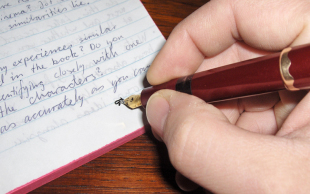 similarities lie.
experiences similar
in the book? Do you
closely with one
the characters?
as accurately as you can